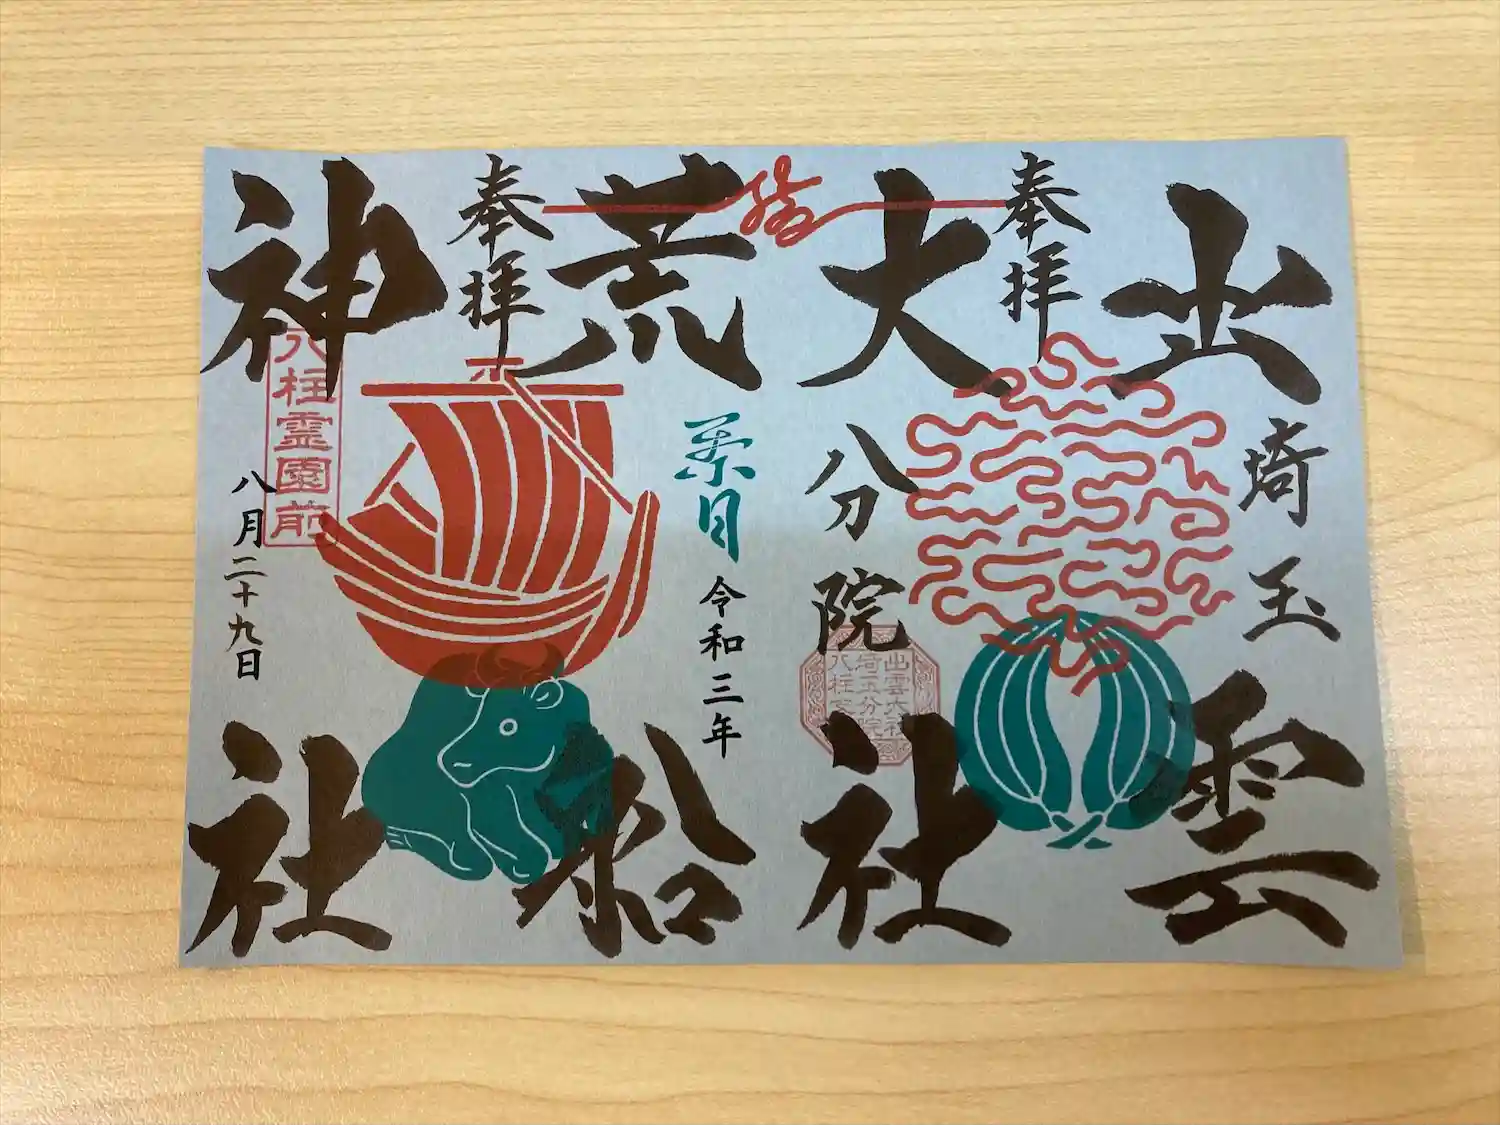 出雲
埼玉
奉拝
大社
分院
出雲大社
埼玉分院
荒船
奉拝
葉月
令和三年
神社
八月二十九日
八柱霊園前